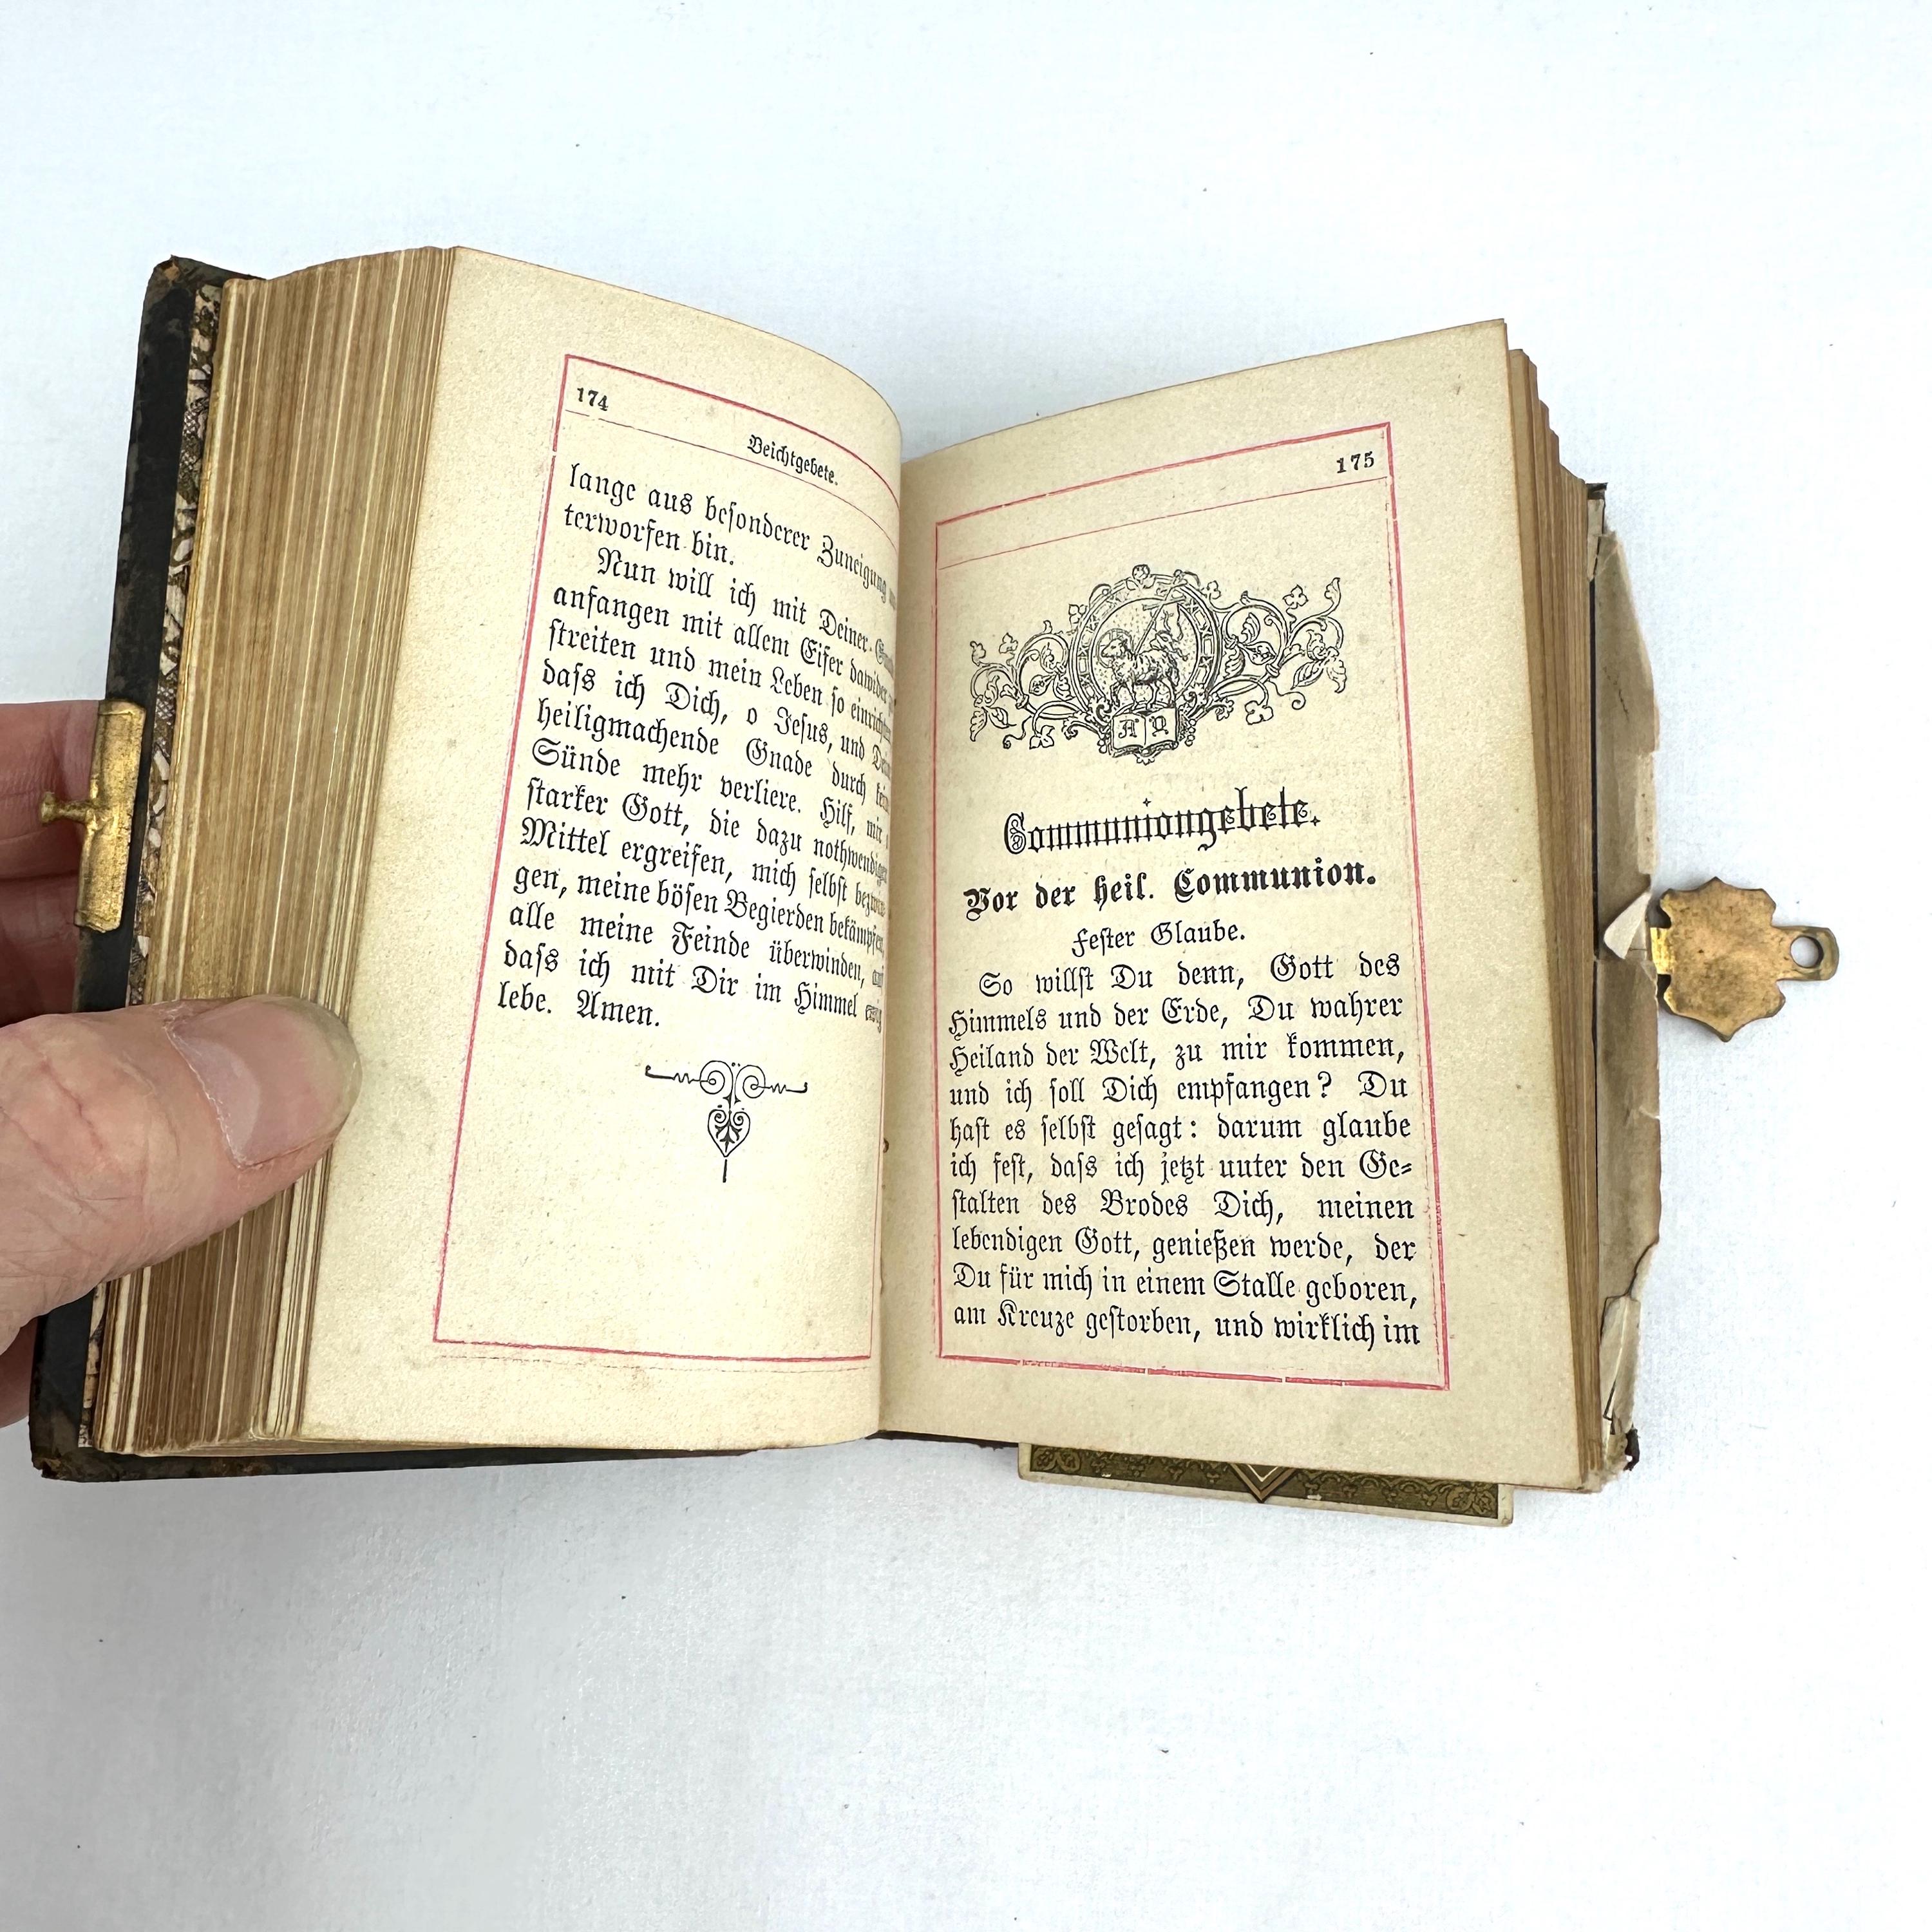 174
Beichtgebete.
lange aus beſonderer Zuneigung
terworfen bin.
Nun will ich mit Deiner
anfangen mit allem Eifer dawider
ſtreiten und mein Leben ſo
daſs ich Dich, o Jeſus, und
heiligmachende Gnade durch
Sünde mehr verliere. Hilf, mir
ſtarker Gott, die dazu nothwendigen
Mittel ergreifen, mich ſelbſt
gen, meine böſen Begierden bekämpfen,
alle meine Feinde überwinden,
daſs ich mit Dir im Himmel
lebe. Amen.
175
A Ω
Communiongebete.
Vor der heil. Communion.
Feſter Glaube.
So willſt Du denn, Gott des
Himmels und der Erde, Du wahrer
Heiland der Welt, zu mir kommen,
und ich ſoll Dich empfangen? Du
haſt es ſelbſt geſagt: darum glaube
ich feſt, daſs ich jetzt unter den Ge⸗
ſtalten des Brodes Dich, meinen
lebendigen Gott, genießen werde, der
Du für mich in einem Stalle geboren,
am Kreuze geſtorben, und wirklich im